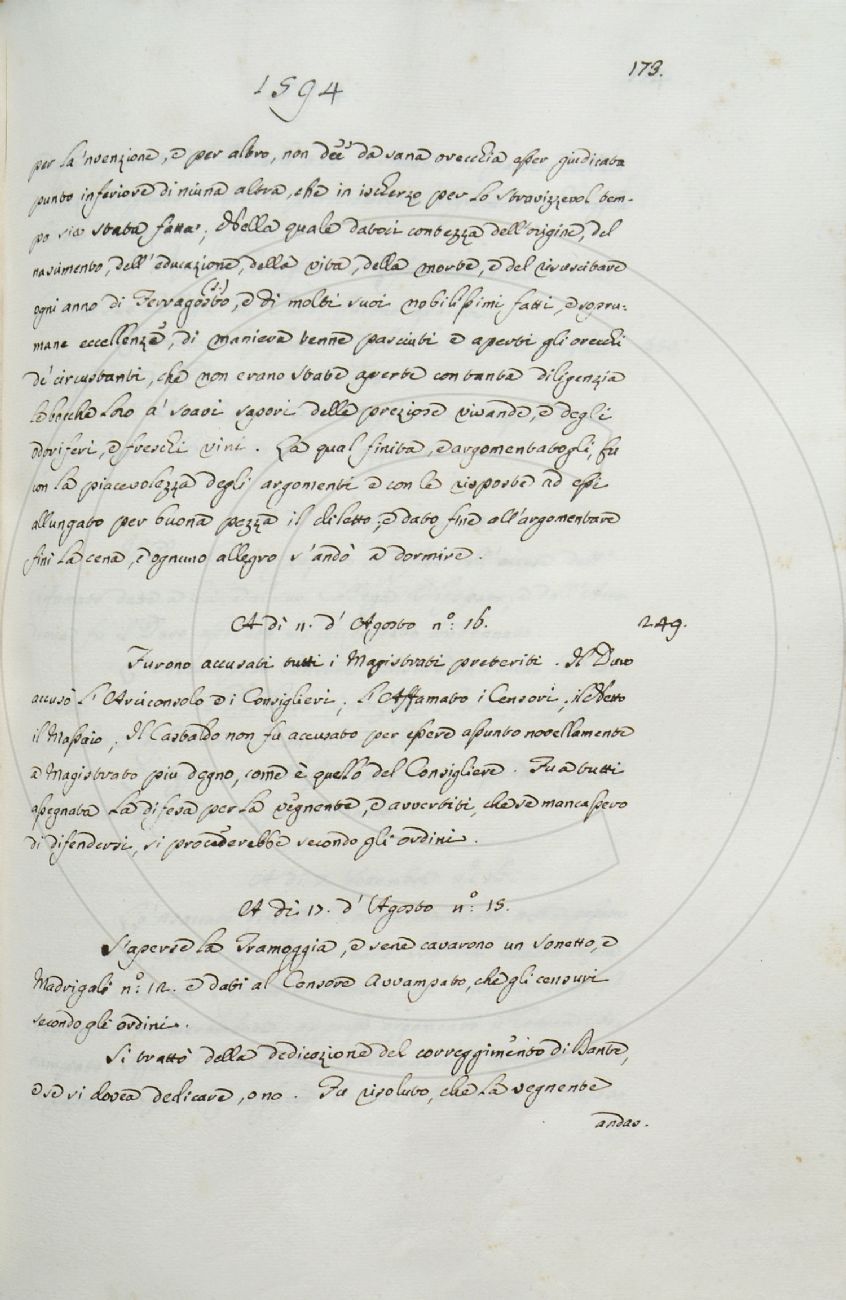 173.
1594
per la 'nvenzione, e per altro, non dee da sana orecchia esser giudicata
punto inferiore di niuna altra, che in ischerzo per lo stravizzevol tem-
po sia stata fatta; Nella quale datoci contezza dell'origine, del
nascimento, dell'educazione, della vita, della morte, e del risuscitare
ogni anno di Ferragosto, e di molti suoi nobilissimi fatti, e sopru-
mane eccellenze, di maniera tenne pasciuti e aperti gli orecchi
de' circustanti, che non erano state aperte con tanta diligenzia
le bocche loro a' soavi sapori delle preziose vivande, e degli
odoriferi, e freschi vini. La qual finita, e argomentatogli, fu
con la piacevolezza degli argomenti e con le risposte ad essi
allungato per buona pezza il diletto, e dato fine all'argomentare
finì la cena, e ognuno allegro s'andò a dormire.
A dì 11. d'Agosto n.º 16.
249.
Furono accusati tutti i Magistrati preteriti. Il Duro
accusò l'Arciconsolo e i Consiglieri; l'Affamato i Censori; il detto
il Massaio; Il Castaldo non fu accusato per essere assunto novellamente
a Magistrato più degno, come è quello del Consigliere. Fu a tutti
assegnata la difesa per la vegnente, e avvertiti, che se mancassero
di difendersi, si procederebbe secondo gli ordini.
A dì 17. d'Agosto n.º 18.
S'aperse la Tramoggia, e sene cavarono un sonetto, e
Madrigali n.º 12. e dati al Censore Avvampato, che gli censuri
secondo gli ordini.
Si trattò della dedicazione del correggimento di Dante,
e se si dovea dedicare, o no. Fu risoluto, che la vegnente
andas.